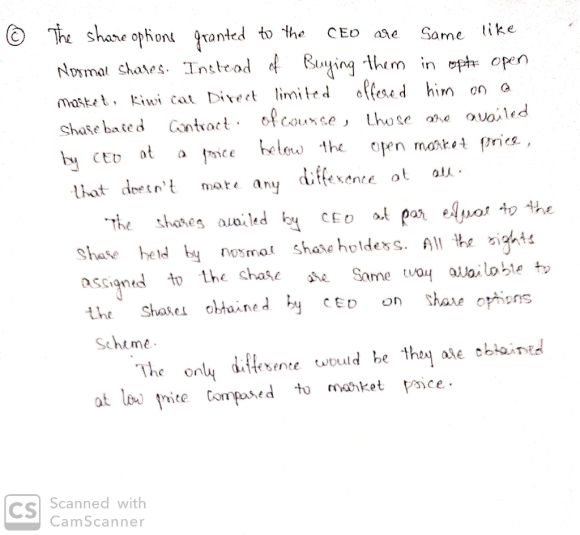 © The share options granted to the CEO are Same like
Normal shares. Instead of Buying them in opti open
market. Kiwi car Direct limited offered him on a
Share based Contract. of course, those are availed
by CEO at a price below the open market price,
that doesn't make any difference at all.
The shares availed by CEO at par equal to the
Share held by normal shareholders. All the rights
assigned to the share are Same way available to
the Shares obtained by CEO on Share options
Scheme.
The only difference would be they are obtained
at low price Compared to market price.
CS Scanned with
CamScanner